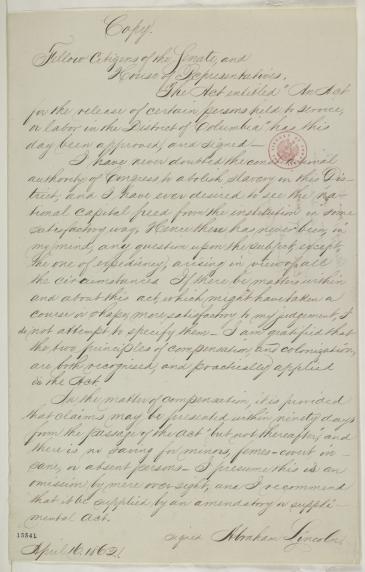 Copy.
Fellow Citizens of the Senate, and
House of Representatives,
The Act entitled "An Act
for the release of certain persons held to service,
or labor in the District of Columbia" has this
day been approved, and signed—
I have never doubted the constitutional
authority of Congress to abolish slavery in this Dis-
trict; and I have ever desired to see the na-
tional capital freed from the institution in some
satisfactory way. Hence there has never been, in
my mind, any question upon the subject, except
the one of expediency, arising in view of all
the circumstances. If there be matters within
and about this act, which might have taken a
course or shape, more satisfactory to my judgment, I
do not attempt to specify them— I am gratified that
the two principles of compensation, and colonization,
are both recognized, and practically applied
in the Act.
In the matter of compensation, it is provided
that claims may be presented within ninety days
from the passage of the act "but not thereafter"; and
there is no saving for minors, femes-covert, in-
sane, or absent persons— I presume this is an
omission by mere over-sight, and I recommend
that it be supplied by an amendatory or supple-
mental act.
signed Abraham Lincoln
15541
April 16. 1862.